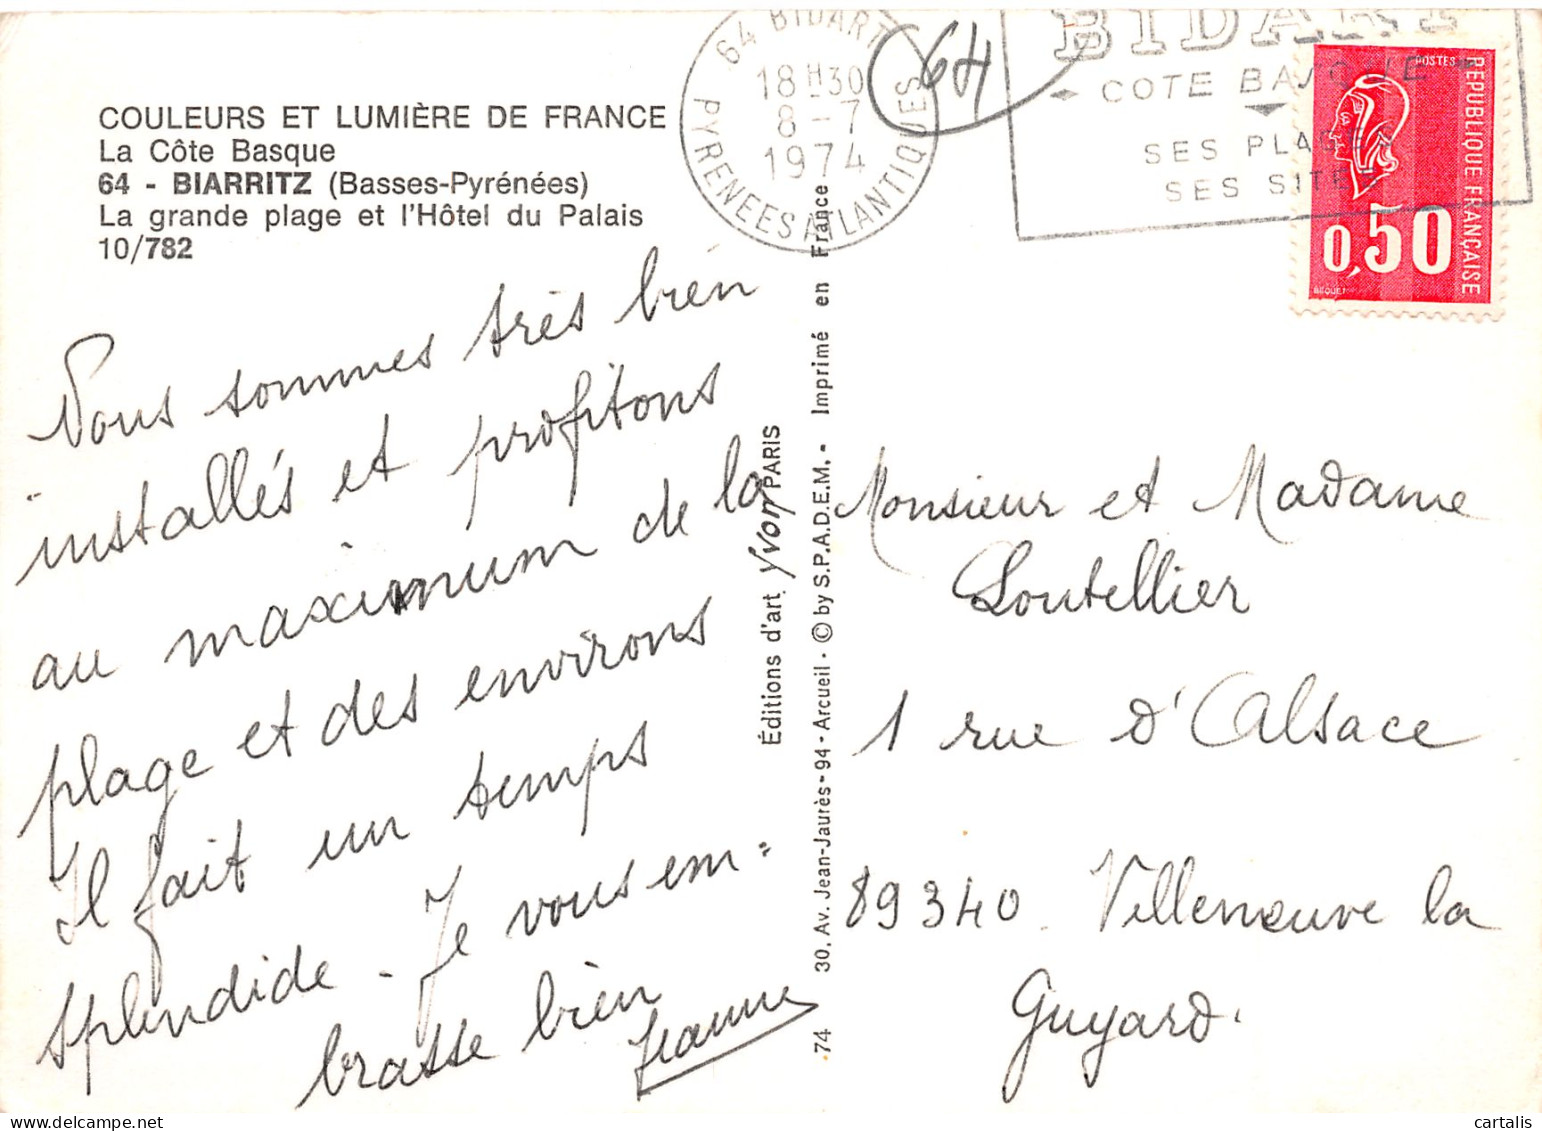 COULEURS ET LUMIÈRE DE FRANCE
La Côte Basque
64 - BIARRITZ (Basses-Pyrénées)
La grande plage et l'Hôtel du Palais
10/782
Nous sommes très bien
installés et profitons
au maximum de la
plage et des environs
Il fait un temps
splendide - Je vous em-
brasse bien
Jeanne
Éditions d'art Yvon PARIS
30, Av. Jean-Jaurès - 94 - Arcueil - © by S.P.A.D.E.M. - Imprimé en France
74
64 BIDART
18H30
8-7
1974
PYRENEES ATLANTIQUES
64
BIDART
COTE BASQUE
SES PLAGES
SES SITES
POSTES
REPUBLIQUE FRANÇAISE
0,50
BEQUET
Monsieur et Madame
Loutellier
1 rue d'Alsace
89340 Villeneuve la
Guyard.
cartalis